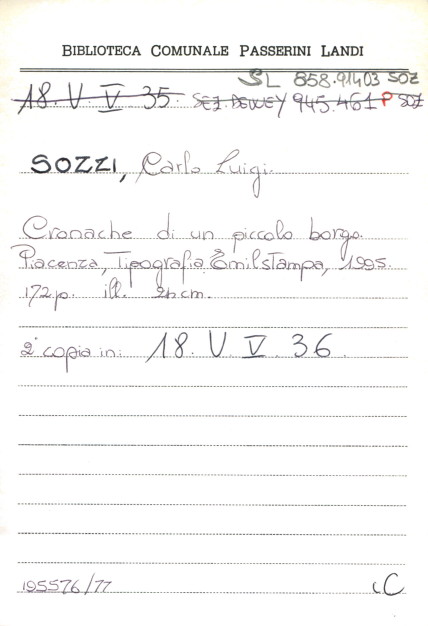 BIBLIOTECA COMUNALE PASSERINI LANDI
SL 858.91403 SOZ
18. V. V 35. SEZ. DEWEY 945.461 P SOZ
SOZZI, Carlo Luigi.
Cronache di un piccolo borgo.
Piacenza, Tipografia Emilstampa, 1995.
172 p. ill. 24 cm.
2ª copia in: 18. V. V. 36.
195576/77
C